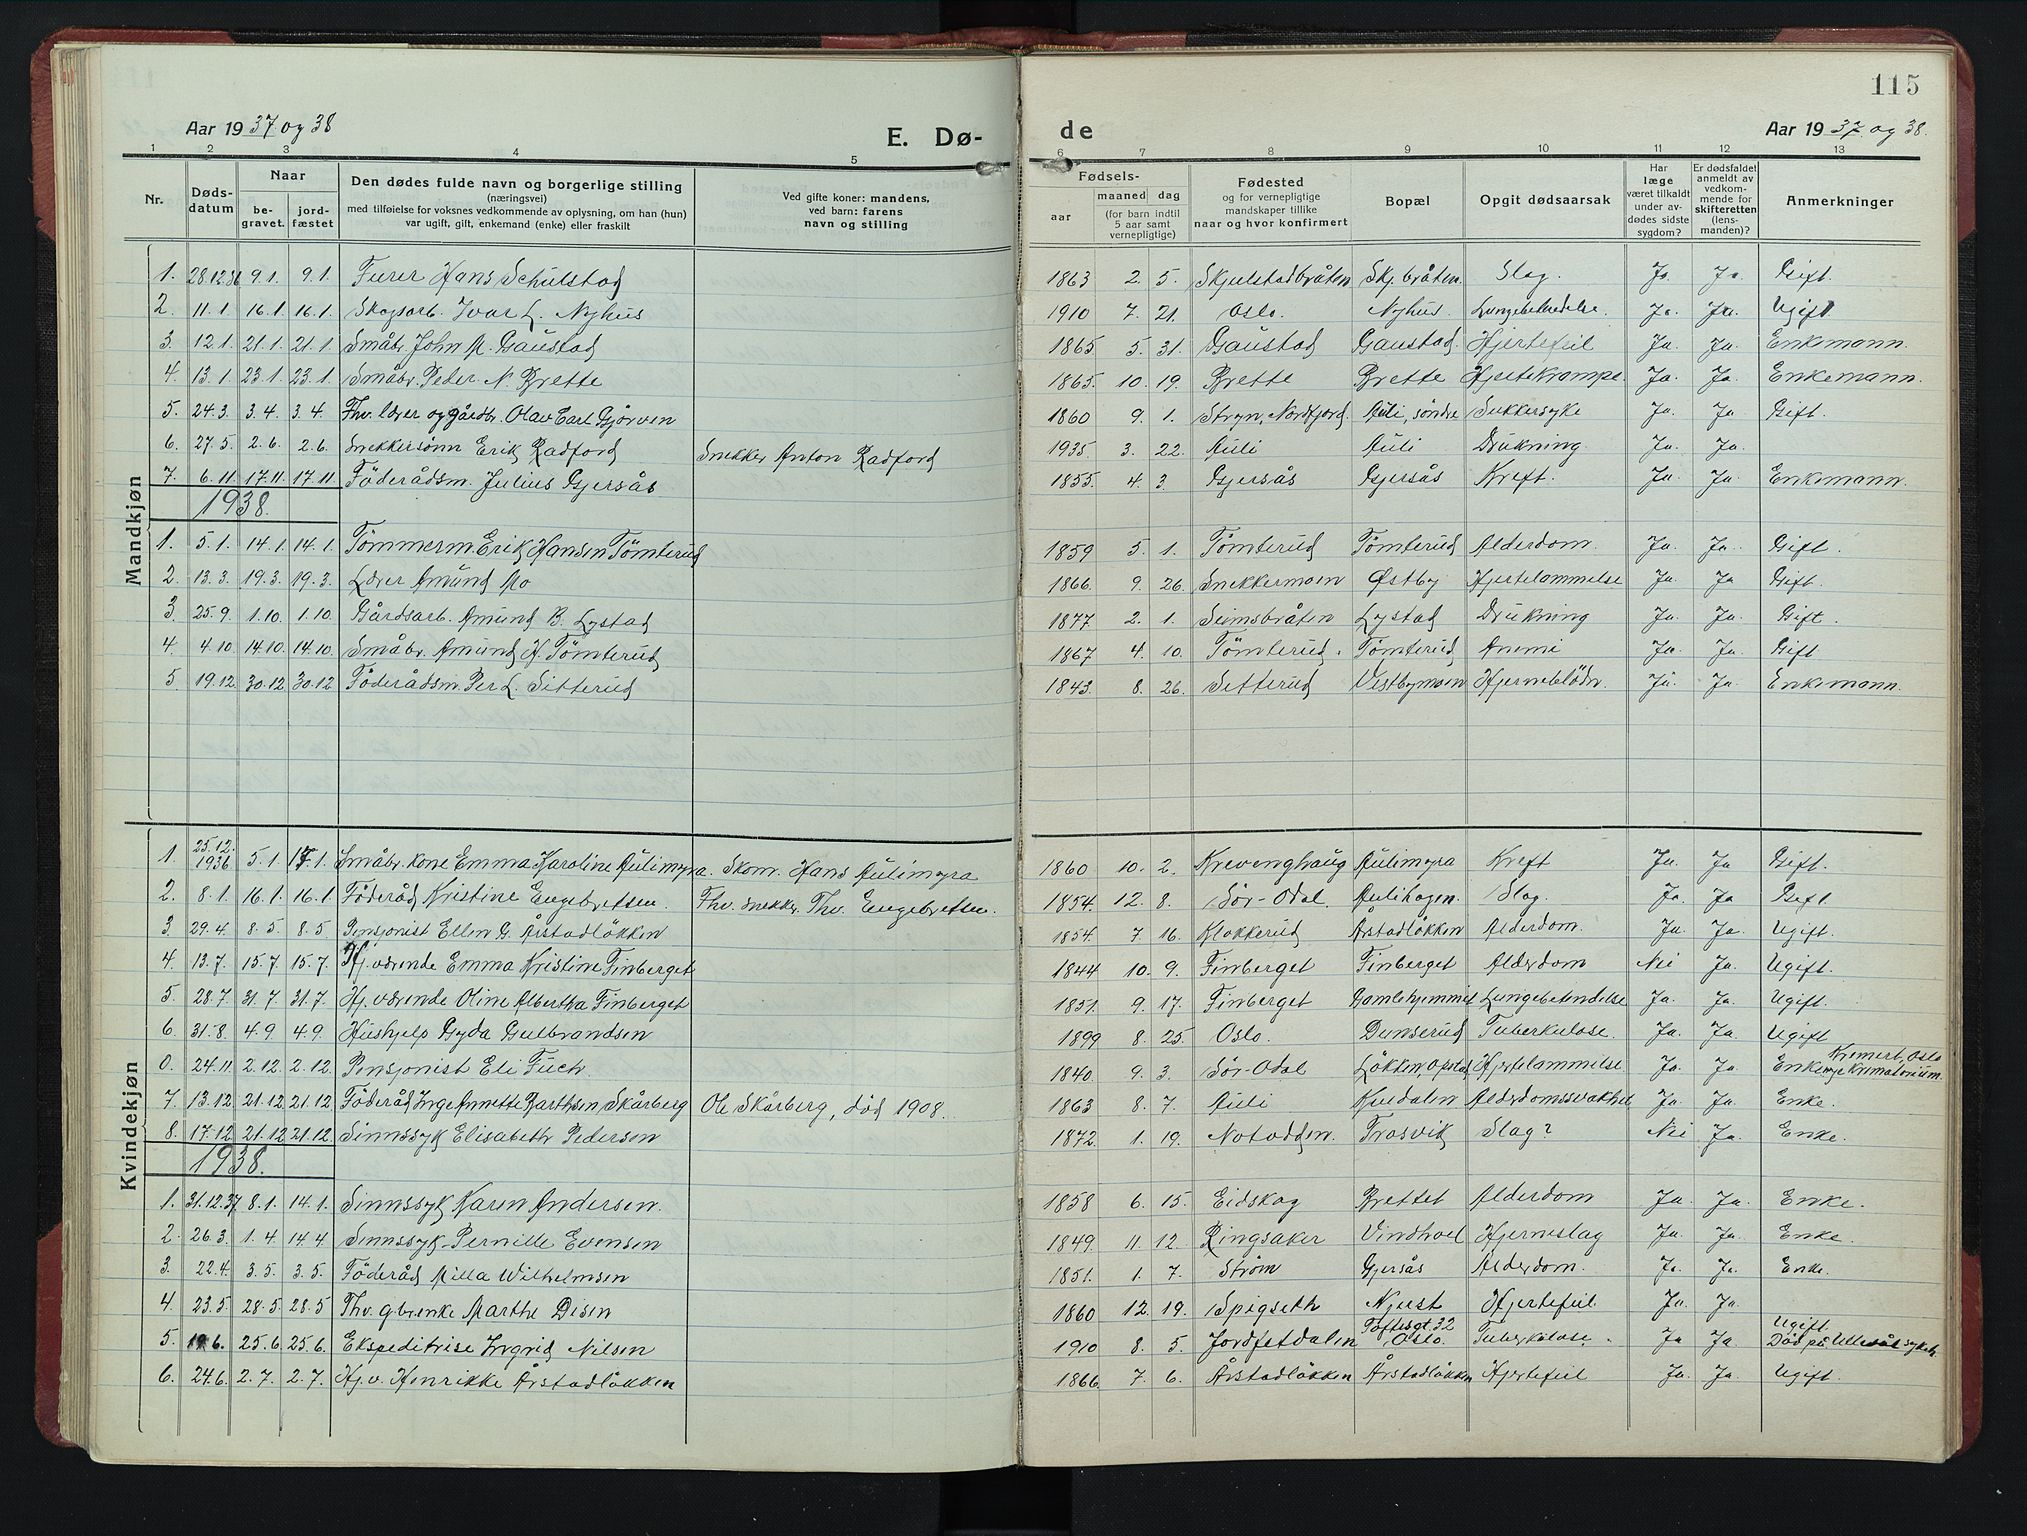 115
Aar 19 37 og 38 E. Dø- de Aar 19 37 og 38.
1 2 3 4 5 6 7 8 9 10 11 12 13
Nr. Døds-datum Naar be-gravet. jord-fæstet Den dødes fulde navn og borgerlige stilling (næringsvei) med tilføielse for voksnes vedkommende av oplysning, om han (hun) var ugift, gift, enkemand (enke) eller fraskilt Ved gifte koner: mandens, ved barn: farens navn og stilling Fødsels- aar maaned dag (for barn indtil 5 aar samt vernepligtige) Fødested og for vernepligtige mandskaper tillike naar og hvor konfirmert Bopæl Opgit dødsaarsak Har læge været tilkaldt under av-dødes sidste sygdom? Er dødsfaldet anmeldt av vedkom-mende for skifteretten (lens-manden)? Anmerkninger
Mandkjøn
1. 28.12.36 9.1. 9.1. Furer Hans Schulstad 1863 2. 5. Skjulstadbråten Skj.bråten. Slag. Ja. Ja. Gift.
2. 11.1 16.1. 16.1. Skogsarb. Ivar L. Nyhus 1910 7. 21. Oslo. Nyhus. Lungebetendelse. Ja. Ja. Ugift
3. 12.1 21.1 21.1 Småbr. John M. Gaustad 1865 5. 31. Gaustad Gaustad. Hjertefeil Ja. Ja. Enkemann.
4. 13.1 23.1 23.1. Småbr. Peder N. Brette 1865. 10. 19. Brette Brette Hjertekrampe. Ja. Ja. Enkemann.
5. 24.3. 3.4. 3.4. Fhv. lærer og gårdbr. Olav Earl Gjørven 1860 9. 1. Stryn, Nordfjord. Auli, søndre Sukkersyke Ja. Ja Gift.
6. 27.5 2.6. 2.6. Snekkersønn Erik Radford Snekker Anton Radford 1935. 3. 22. Auli Auli Drukning Ja. Ja.
7. 6.11 17.11. 17.11. Föderådsm. Julius Gjersås 1855. 4. 3. Gjersås Gjersås Kreft. Ja. Ja. Enkemann.
1938.
1. 5.1. 14.1 14.1. Tömmerm. Erik Hansen Tömterud 1859 5. 1. Tömterud Tömterud Alderdom. Ja. Ja. Gift.
2. 13.3. 19.3. 19.3. Lærer Amund Mo 1866. 9. 26. Snekkermoen Østby Hjertelammelse Ja. Ja Gift.
3. 25.9 1.10. 1.10. Gårdsarb. Amund B. Lystad 1877 2. 1. Seimsbråten Lystad Drukning Ja. Ja. Gift.
4. 4.10 14.10 14.10. Småbr. Amund H. Tömterud 1867. 4. 10. Tömterud. Tömterud Anemi Ja. Ja. Gift
5. 19.12. 30.12 30.12. Föderådsm. Per L. Sitterud 1843. 8. 26. Setterud Vestbymoen Hjerneblödn. Ja. Ja. Enkemann.
Kvindekjøn
1. 25.12. 1936 5.1. 17.1. Småbr.kone Emma Karoline Aulimyra. Skom. Hans Aulimyra 1860 10. 2. Krevenghaug Aulimyra Kreft Ja. Ja Gift.
2. 8.1. 16.1. 16.1. Föderåd Kristine Engebretsen. Fhv. snekker Thv. Engebretsen. 1854. 12. 8. Sör-Odal. Aulihagen. Slag. Ja. Ja Gift
3. 29.4. 8.5. 8.5 Pensjonist Ellen G. Årstadlökken 1854. 7. 16. Klokkerud Årstadlökken Alderdom. Ja. Ja. Ugift.
4. 13.7 15.7. 15.7. Hj.værende Emma Kristine Finberget 1844 10. 9. Finberget Finberget Alderdom Nei Ja. Ugift.
5. 28.7. 31.7. 31.7. Hj.værende Oline Albertha Finberget 1851. 9. 17. Finberget Gamlehjemmet Lungebetendelse Ja. Ja. Ugift.
6. 31.8. 4.9. 4.9. Hushjelp Gyda Gulbrandsen 1899 8. 25. Oslo. Dunserud Tuberkulose. Ja. Ja. Ugift
0. 24.11. 2.12. 2.12. Pensjonist Eli Fuch. 1840. 9. 3. Sör-Odal Lökken, Opstad Hjertelammelse Ja. Ja. Enke Kremert, Oslo nye Krematorium.
7. 13.12. 21.12. 21.12 Föderåd Inge Annette Barthsen, Skårberg Ole Skårberg, död 1908. 1863 8. 7. Auli Kvedalen Alderdomssvakhet Ja. Ja. Enke.
8. 17.12 21.12 21.12 Sinnssyk Elisabeth Pedersen 1872. 1. 19. Notodden. Trosvik Slag? Nei Ja. Enke.
1938.
1. 31.12.37 8.1. 14.1. Sinnssyk Karen Andersen. 1858 6. 15. Eidskog Brettet Alderdom Ja. Ja. Enke.
2. 26.3. 1.4. 14.4 Sinnssyk Pernille Evensen 1849. 11. 12. Ringsaker Vindhoel Hjerneslag Ja. Ja. Enke.
3. 22.4. 3.5. 3.5. Föderåd Milla Wilhelmsen 1851. 1. 7. Strøm Gjersås Alderdom. Ja. Ja. Enke.
4. 23.5. 28.5. 28.5 Fhv. gbr.enke Marthe Disen 1860 12. 19. Spigseth Njust Hjertefeil Ja. Ja
5. 19.6. 25.6 25.6. Ekspeditrise Ingrid Nilsen 1910 8. 5. Jordfetdalen Toftesgt. 32 Oslo. Tuberkulose. Ja Ja Ugift. Död på Ullevål sykeh.
6. 24.6. 2.7. 2.7. Hj.v. Henrikke Årstadlökken 1866. 7. 6. Årstadlökken Årstadlökken Hjertefeil Ja. Ja. Ugift.